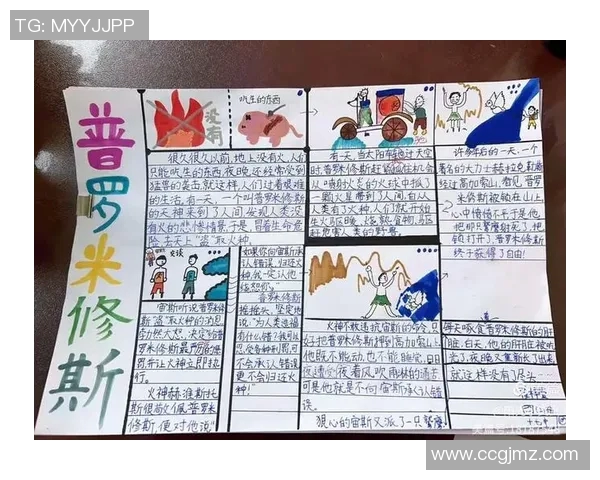 TG: MYYJJPP
普罗米修斯
没有
吃生的东西
很久很久以前,地上没有火,人们
只能吃生的东西,夜晚还经常受到
猛兽的袭击,就这样,人们过着艰难
的生活。有一天,一个叫普罗米修斯
的天神来到了人间,发现人类没
有火的悲惨情景,于是,冒着生命危
险,去天上“盗”取火种。
有一天,当太阳车驰过天空
时,普罗米修斯赶
从喷射火
一颗火星带到了人间,自从
人类有了火种,人们就开始
生火取暖、烧熟食物、驱
赶危害人类的野兽。
许多年后的一天,一个
著名的大力士赫拉克勒斯
经过高加索山,看见普罗
米修斯被锁在山上,
心中愤愤不平,于是他
他即
锁打开了,普罗米修斯
终于获得了自由!
交谈
宙斯听说普罗米
修斯“盗”取火种的消息,
勃然大怒,决定给普
罗米修斯最严厉的惩
罚,并让火神立即执
行。
火神赫淮斯托
斯很敬佩普罗米
修斯,便对他说:“
如果你向宙斯
承认错误,归还火
种,我一定让他
饶恕你。”
普罗米修斯
摇摇头,坚定地
说:“为人类造福,
有什么错?我可以
忍受各种刑罚,可
不会承认错误,
更不会归还火
种!”
火神不敢违抗宙斯的命令,只
好把普罗米修斯押到高加索山上,
他既不能动,也不能睡觉,日日
夜夜遭受着风吹雨淋的痛苦,
可是他就是不向宙斯承认错
误。
狠心的宙斯又派了一只鹫鹰
每天啄食普罗米修斯的肝
脏,白天,他的肝脏被吃
光了,夜晚又重新长了出来,
就这样没有尽头……
www.ccgjmz.com